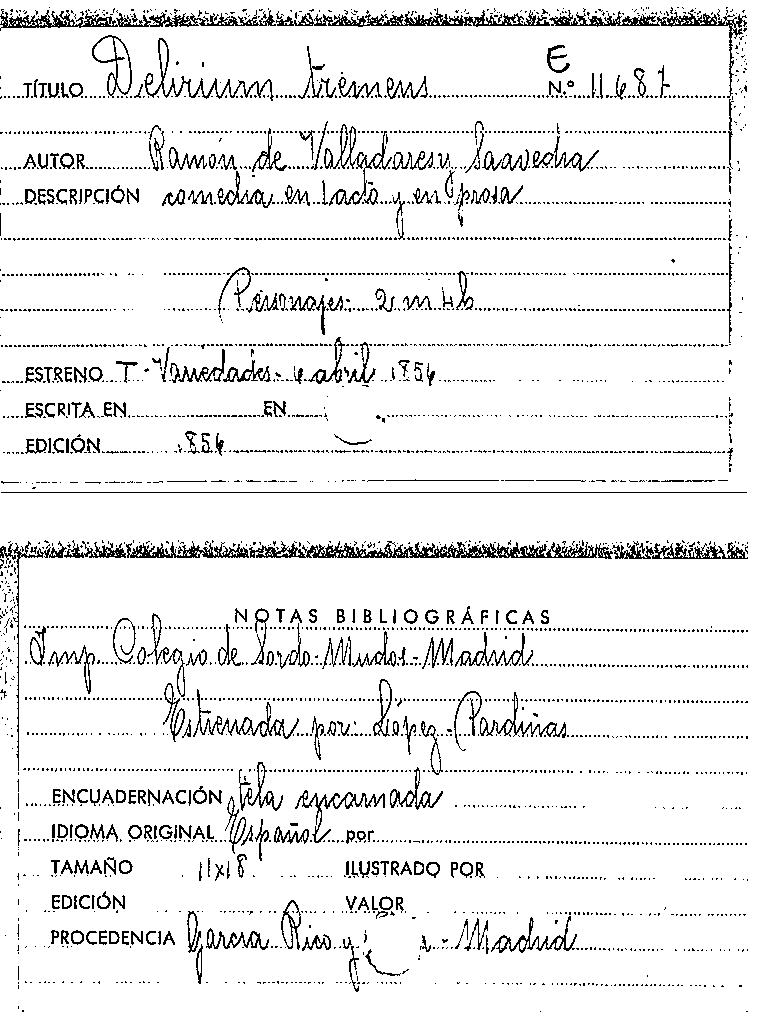 E
TÍTULO Delirium tremens N.º 11.687
AUTOR Ramón de Valladares y Saavedra
DESCRIPCIÓN comedia en 1 acto y en prosa
Personajes: 2 m 4 h
ESTRENO T. Variedades - 6 abril 1856
ESCRITA EN EN
EDICIÓN 1856
NOTAS BIBLIOGRÁFICAS
Imp. Colegio de Sordo-Mudos - Madrid
Estrenada por: López - Pardiñas
ENCUADERNACIÓN tela encarnada
IDIOMA ORIGINAL Español por
TAMAÑO 11x18 ILUSTRADO POR
EDICIÓN VALOR
PROCEDENCIA García Rico y - Madrid